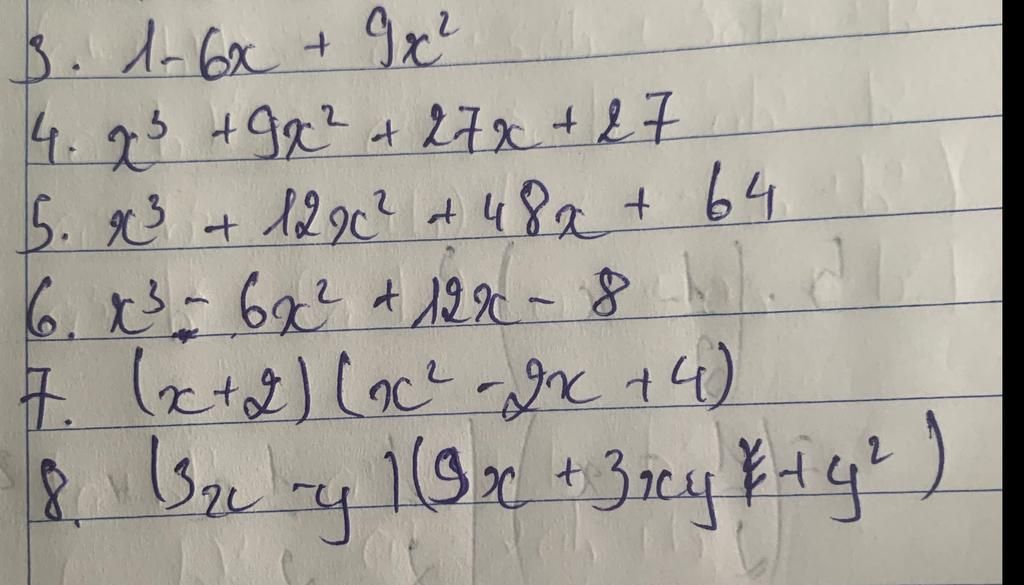 3. 1-6x + 9x²
4. x³ + 9x² + 27x + 27
5. x³ + 12x² + 48x + 64
6. x³ - 6x² + 12x - 8
7. (x+2)(x² - 2x + 4)
8. (3x - y)(9x + 3xy + y²)